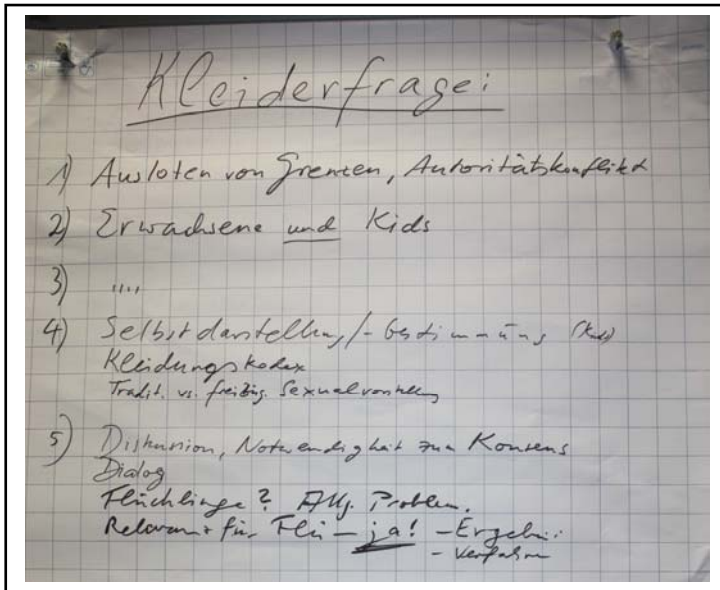 Kleiderfrage:
1) Ausloten von Grenzen, Autoritätskonflikt
2) Erwachsene und Kids
3) ....
4) Selbstdarstellung/-bestimmung (Kids)
Kleidungskodex
Tradit. vs. freizüg. Sexualvorstellung
5) Diskussion, Notwendigkeit zum Konsens
Dialog
Flüchlinge? Allg. Problem.
Relevant für Flü – ja! – Ergebni
– Verfahren